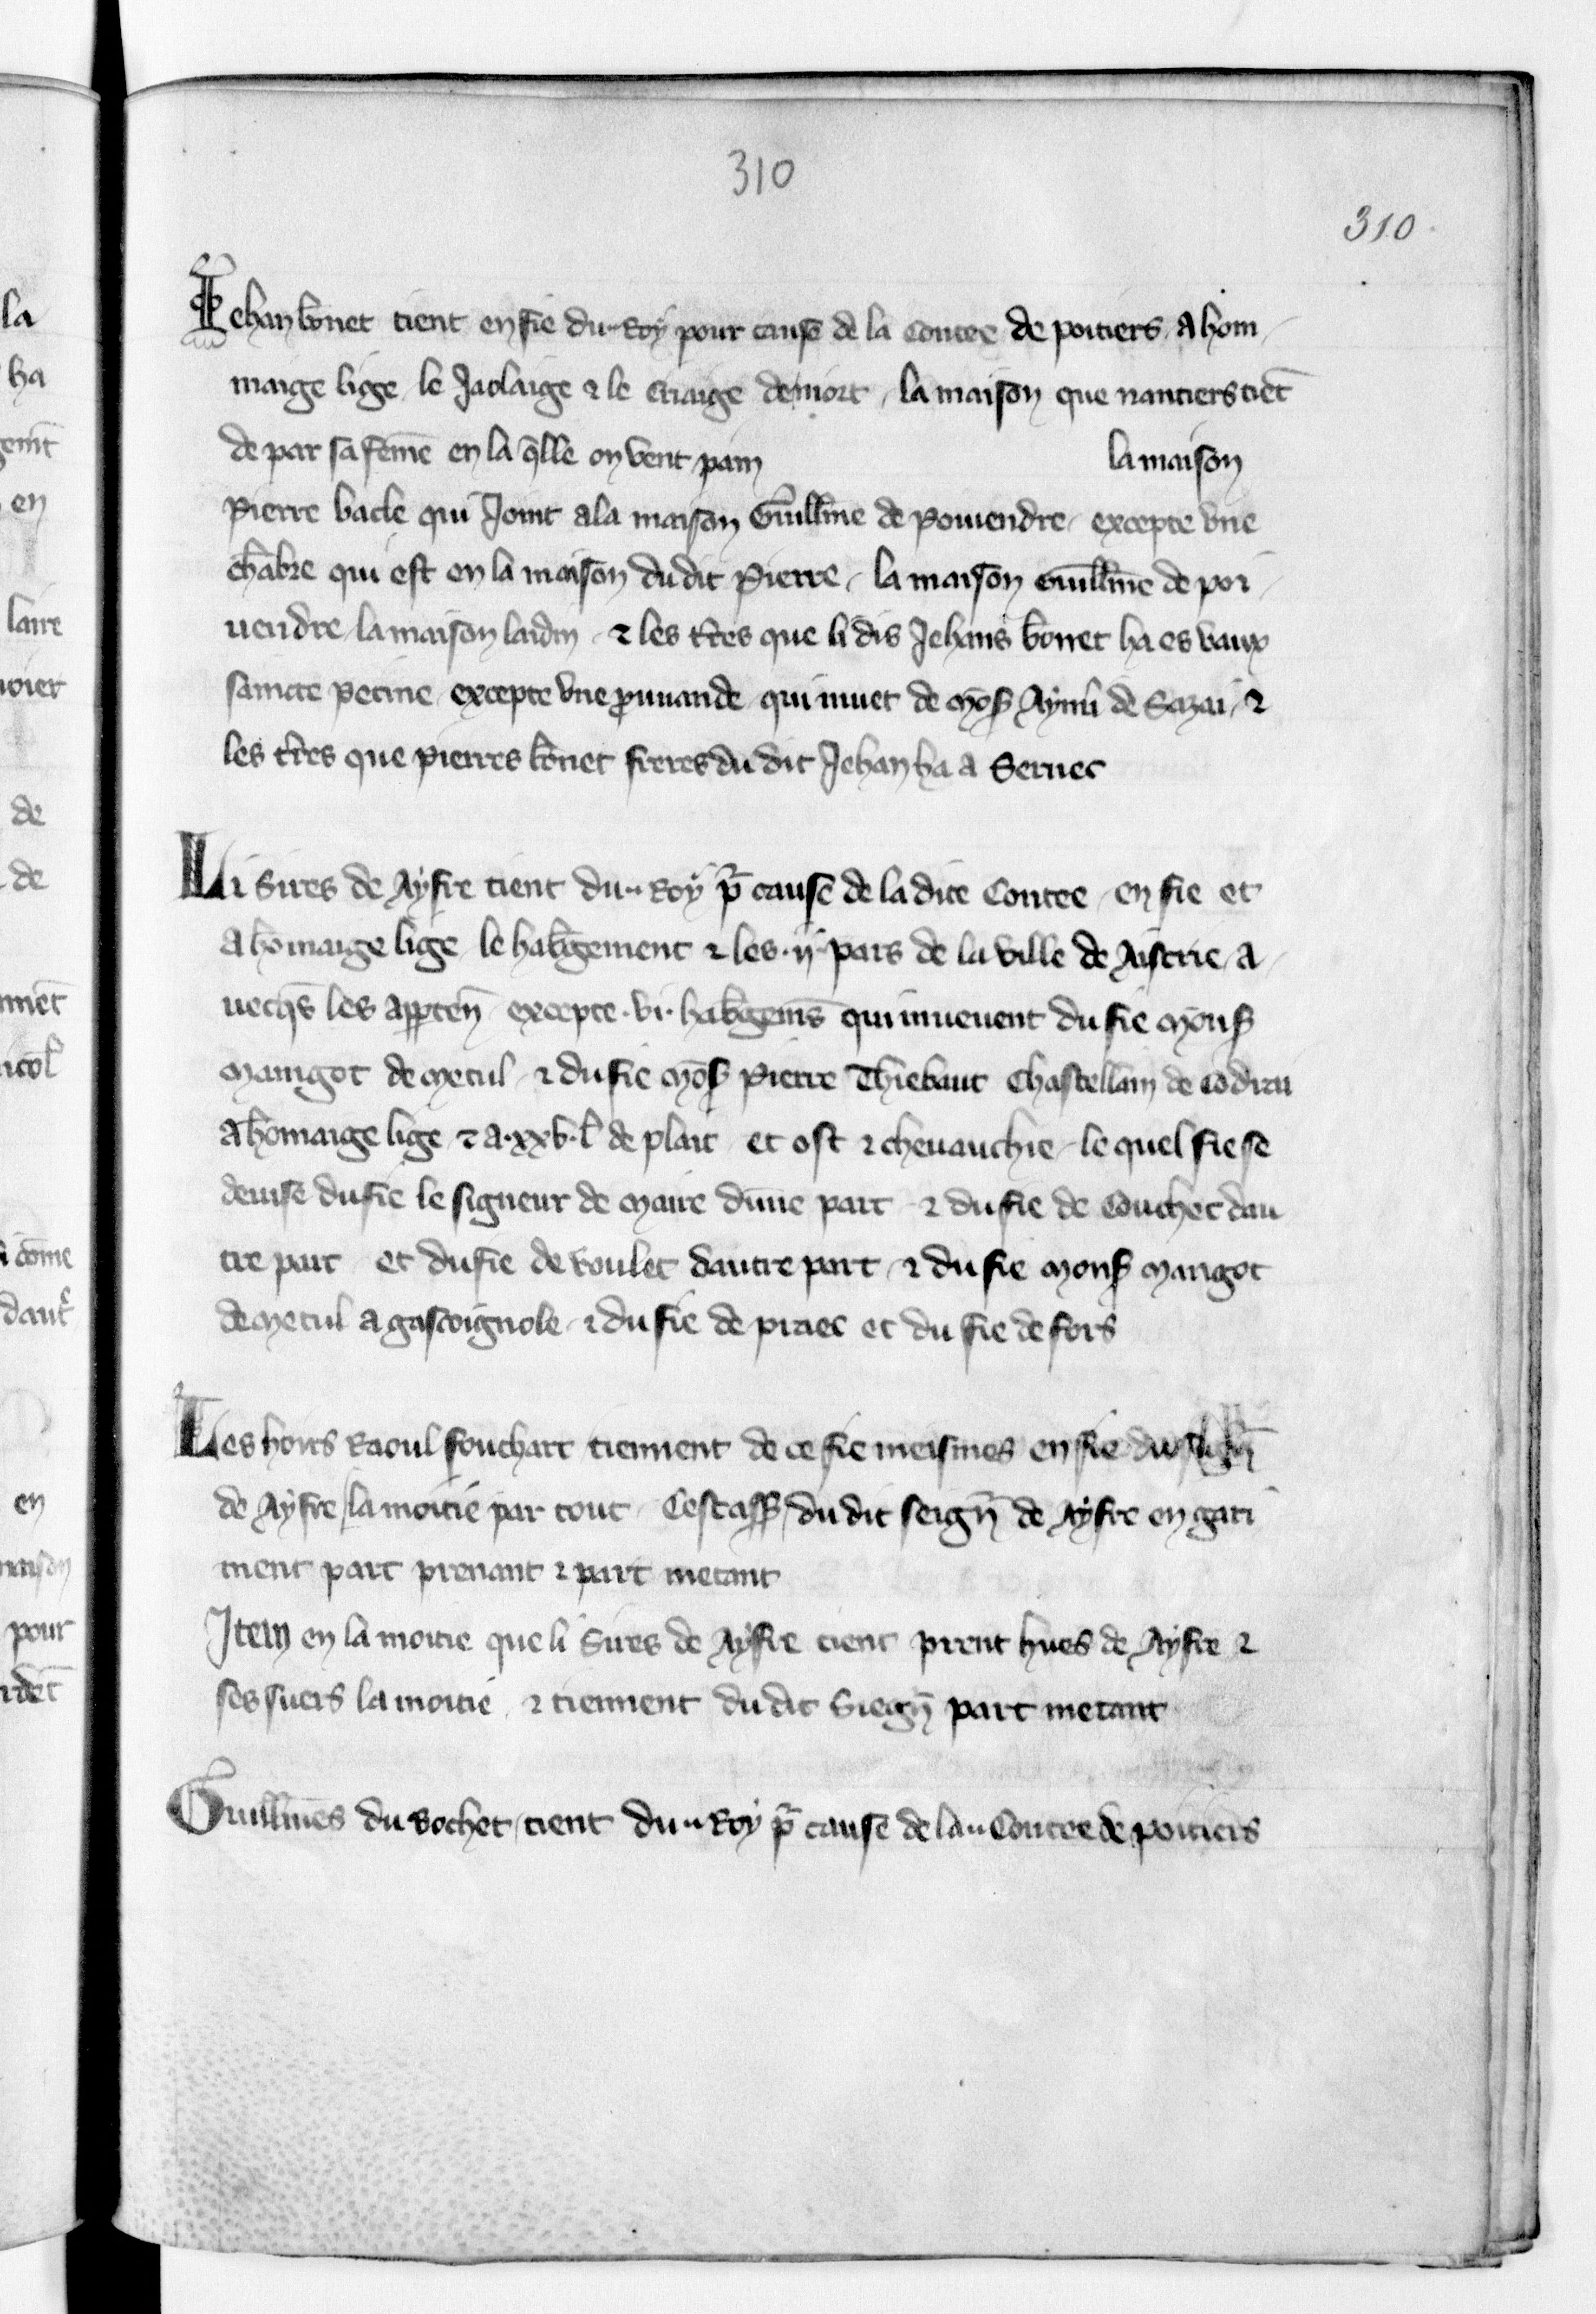 310
310
Jehan bonet tient en fie du Roy pour cause de la Contee de poitiers A hom
maige lige le Jaolaige & le criaige de niort la maison que nantiers tiēt
de par sa feme̅ en la q̄lle on vent pain la maison
Pierre bacle qui Joint a la maison Guill̅me de Poivendre excepte vne
cha̅bre qui est en la maison du dit Pierre la maison Guill̅me de poi
uendre la maison laidin & les t̅res que li dis Jehans bonet ha es vaux
saincte Pecine excepte vne prouande qui muet de mōs Aym̅ de Sazai &
les t̅res que pierres bonet freres du dit Jehan ha a Seruec
Li Sires de Ayfre tient du Roy p̄ cause de la dite Contee en fie et
a ho̅maige lige le hab̅gement & les ii pars de la ville de Aiscrie a
uecq̄s les app̄ten̄ excepte vi hab̅gem̄s qui mueuent du fie mōns
maingot de metul & du fie mōs Pierre Thiebaut Chastellain de
A ho̅maige lige & a xxv l̄ de plait et ost & cheuauchie le quel fie se
deuise du fie le signeur de maire dune part & du fie de Couchec dau
tre part et du fie de voulec dautre part & du fie mons maigot
de metul a gascoignole & du fie de praec et du fie de fors
Les hoirs Raoul fouchart tiennent de ce fie meismes en fie du
de Ayfre la moitie par tout Cestass du dit seign̄ de Ayfre en gari
ment part prenant & part metant
Item en la moitie que li Sires de Ayfre tient prent hues de Ayfre &
ses suers la moitie & tiennent du dit Siegn̄ part metant
Guill̅mes du Rochet tient du Roy p̄ cause de la Contee de poitiers